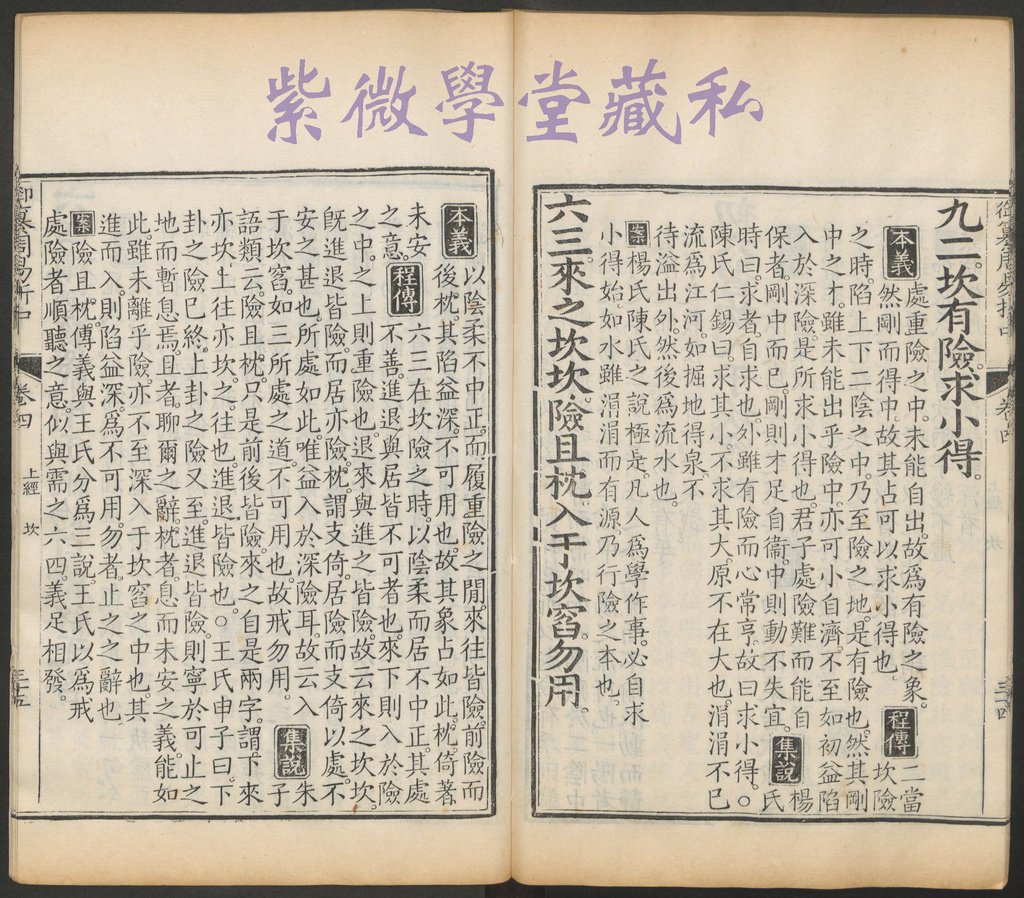 紫微學堂藏私
御纂周易折中 卷四 三十四
九二。坎有險。求小得。
本義 處重險之中。未能自出。故爲有險之象。
然剛而得中。故其占可以求小得也。
程傳 二當
坎險
之時。陷上下二陰之中。乃至險之地。是有險也。然其剛
中之才。雖未能出乎險中。亦可小自濟。不至如初益陷
入於深險。是所求小得也。君子處險難而能自
保者。剛中而已。剛則才足自衞。中則動不失宜。
集說 楊
氏
時曰。求者。自求也。外雖有險而心常亨。故曰求小得。○
陳氏仁錫曰。求其小。不求其大。原不在大也。涓涓不已
流爲江河。如掘地得泉。不
待溢出外。然後爲流水也。
案 楊氏陳氏之說極是。凡人爲學作事。必自求
小得始。如水雖涓涓而有源。乃行險之本也。
六三。來之坎坎。險且枕。入于坎窞。勿用。
本義 以陰柔不中正。而履重險之閒。來往皆險。前險而
後枕。其陷益深。不可用也。故其象占如此。枕。倚著
未安
之意。
程傳 六三在坎險之時。以陰柔而居不中正。其處
不善。進退與居皆不可者也。來下則入於險
之中。之上則重險也。退來與進之皆險。故云來之坎坎。
旣進退皆險。而居亦險。枕。謂支倚。居險而支倚以處。不
安之甚也。所處如此。唯益入於深險耳。故云入
于坎窞。如三所處之道。不可用也。故戒勿用。
集說 朱
子
語類云。險且枕。只是前後皆險。來之自是兩字。謂下來
亦坎。上往亦坎。之。往也。進退皆險也。○王氏申子曰。下
卦之險已終。上卦之險又至。進退皆險。則寧於可止之
地而暫息焉。且者。聊爾之辭。枕者。息而未安之義。能如
此。雖未離乎險。亦不至深入于坎窞之中也。其
進而入。則陷益深。爲不可用。勿者。止之之辭也。
案 險且枕。傳義與王氏分爲三說。王氏以爲戒
處險者順聽之意。似與需之六四。義足相發。
御纂周易折中 卷四 上經 坎 三十五